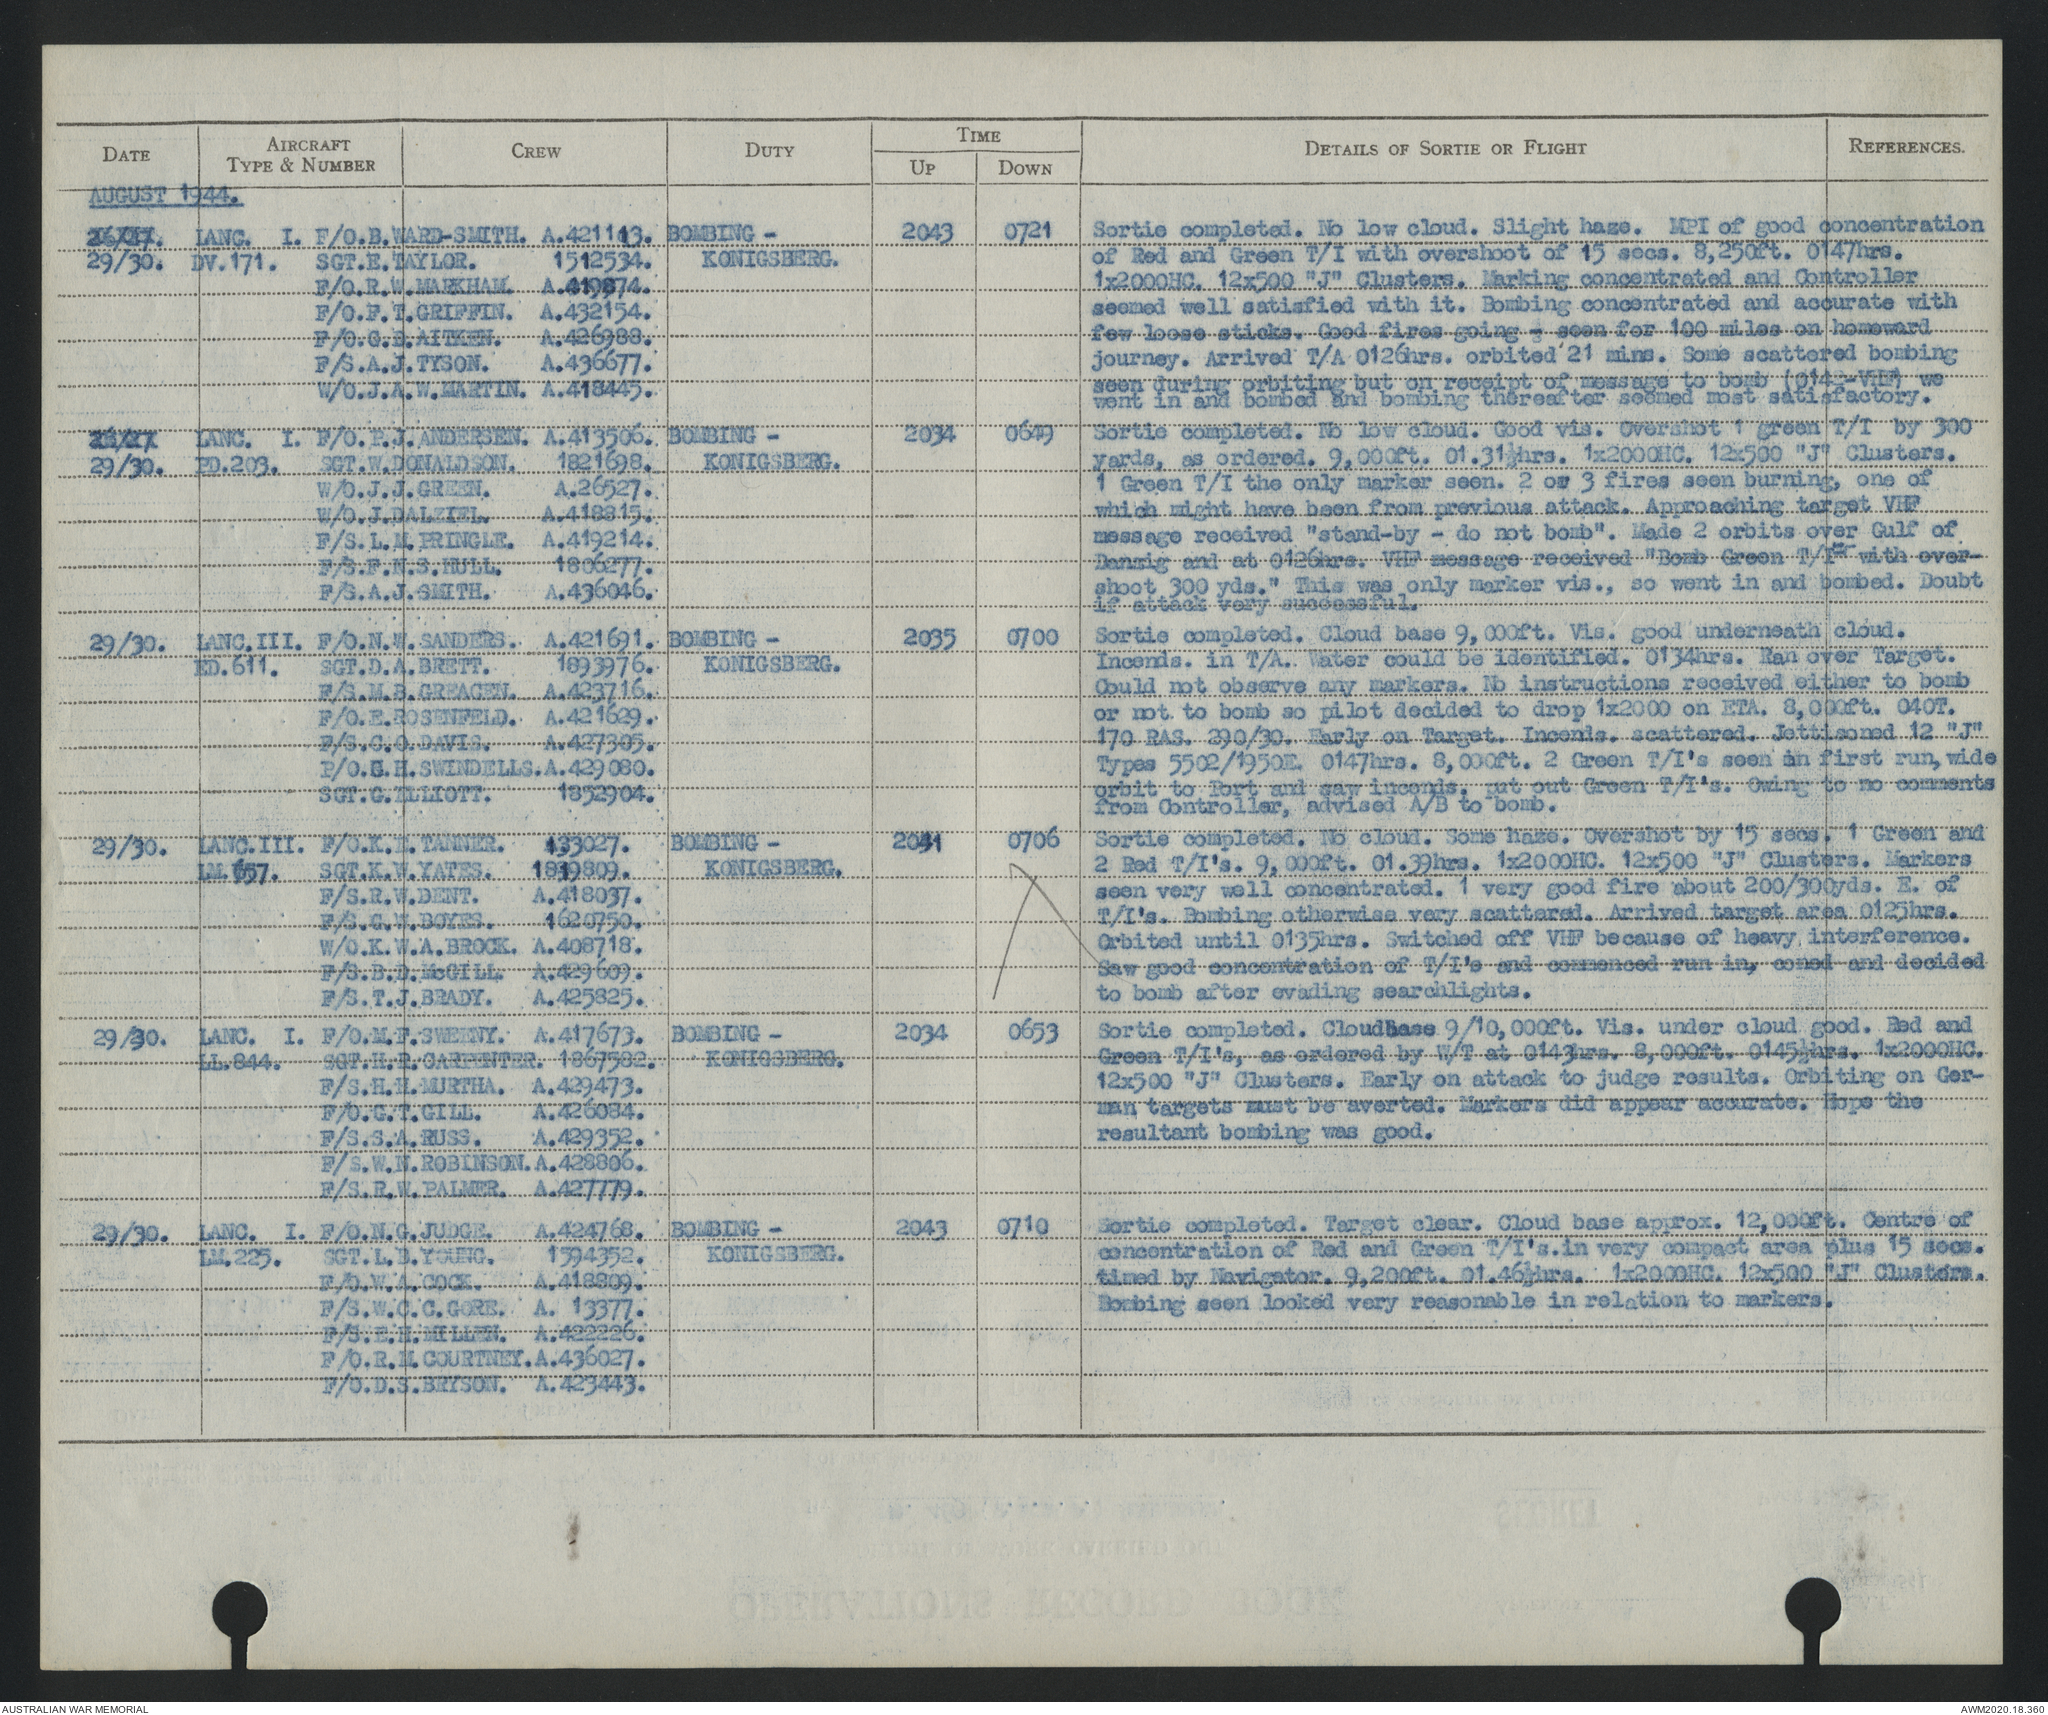 DATE AIRCRAFT TYPE & NUMBER CREW DUTY TIME UP DOWN DETAILS OF SORTIE OR FLIGHT REFERENCES.
AUGUST 1944.
LANC. I. F/O.B.WARD-SMITH. A.421113. BOMBING - 2043 0721 Sortie completed. No low cloud. Slight haze. MPI of good concentration
29/30. DV.171. SGT.E.TAYLOR. 1512534. KONIGSBERG. of Red and Green T/I with overshoot of 15 secs. 8,250ft. 0147hrs.
F/O.R.W.MARKHAM. A.419874. 1x2000HC. 12x500 "J" Clusters. Marking concentrated and Controller
F/O.F.T.GRIFFIN. A.432154. seemed well satisfied with it. Bombing concentrated and accurate with
F/O.G.B.AITKEN. A.426988. few loose sticks. Good fires going - seen for 100 miles on homeward
F/S.A.J.TYSON. A.436677. journey. Arrived T/A 0126hrs. orbited 21 mins. Some scattered bombing
W/O.J.A.W.MARTIN. A.418445. seen during orbiting but on receipt of message to bomb we
went in and bombed and bombing thereafter seemed most satisfactory.
LANC. I. F/O.P.J.ANDERSEN. A.413506. BOMBING - 2034 0649 Sortie completed. No low cloud. Good vis. Overshot 1 green T/I by 300
29/30. PD.203. SGT.W.DONALDSON. 1821698. KONIGSBERG. yards, as ordered. 9,000ft. 01.31½hrs. 1x2000HC. 12x500 "J" Clusters.
W/O.J.J.GREEN. A.26527. 1 Green T/I the only marker seen. 2 or 3 fires seen burning, one of
W/O.J.DALZIEL. A.418815. which might have been from previous attack. Approaching target VHF
F/S.L.M.PRINGLE. A.419214. message received "stand-by - do not bomb". Made 2 orbits over Gulf of
F/S.F.N.S.HULL. 1806277. Danzig and at 0126hrs. VHF message received "Bomb Green T/I with over-
F/S.A.J.SMITH. A.436046. shoot 300 yds." This was only marker vis., so went in and bombed. Doubt
if attack very successful.
29/30. LANC.III. F/O.N.W.SANDERS. A.421691. BOMBING - 2035 0700 Sortie completed. Cloud base 9,000ft. Vis. good underneath cloud.
ED.611. SGT.D.A.BRETT. 1893976. KONIGSBERG. Incends. in T/A. Water could be identified. 0134hrs. Ran over Target.
F/S.M.B.GREACEN. A.423716. Could not observe any markers. No instructions received either to bomb
F/O.E.ROSENFELD. A.421629. or not to bomb so pilot decided to drop 1x2000 on ETA. 8,000ft. 040T.
F/S.C.O.DAVIS. A.427305. 170 RAS. 290/30. Early on Target. Incends. scattered. Jettisoned 12 "J"
P/O.G.H.SWINDELLS. A.429080. Types 5502/1950E. 0147hrs. 8,000ft. 2 Green T/I's seen in first run, wide
SGT.G.ELLIOTT. 1852904. orbit to Port and saw incends. put out Green T/I's. Owing to no comments
from Controller, advised A/B to bomb.
29/30. LANC.III. F/O.K.L.TANNER. 133027. BOMBING - 2041 0706 Sortie completed. No cloud. Some haze. Overshot by 15 secs. 1 Green and
LM.657. SGT.K.W.YATES. 1819809. KONIGSBERG. 2 Red T/I's. 9,000ft. 01.39hrs. 1x2000HC. 12x500 "J" Clusters. Markers
F/S.R.W.DENT. A.418037. seen very well concentrated. 1 very good fire about 200/300yds. E. of
F/S.G.W.BOYES. 1620750. T/I's. Bombing otherwise very scattered. Arrived target area 0125hrs.
W/O.K.W.A.BROCK. A.408718. Orbited until 0135hrs. Switched off VHF because of heavy interference.
F/S.B.D.McGILL. A.429609. Saw good concentration of T/I's and commenced run in, coned and decided
F/S.T.J.BRADY. A.425825. to bomb after evading searchlights.
29/30. LANC. I. F/O.M.F.SWEENY. A.417673. BOMBING - 2034 0653 Sortie completed. Cloud Base 9/10,000ft. Vis. under cloud good. Red and
LL.844. SGT.H.R.CARPENTER. 1867582. KONIGSBERG. Green T/I's, as ordered by W/T at 0143hrs. 8,000ft. 0145½hrs. 1x2000HC.
F/S.H.H.MURTHA. A.429473. 12x500 "J" Clusters. Early on attack to judge results. Orbiting on Ger-
F/O.G.T.GILL. A.426084. man targets must be averted. Markers did appear accurate. Hope the
F/S.S.A.RUSS. A.429352. resultant bombing was good.
F/S.W.N.ROBINSON. A.428806.
F/S.R.W.PALMER. A.427779.
29/30. LANC. I. F/O.N.G.JUDGE. A.424768. BOMBING - 2043 0710 Sortie completed. Target clear. Cloud base approx. 12,000ft. Centre of
LM.225. SGT.L.D.YOUNG. 1594352. KONIGSBERG. concentration of Red and Green T/I's.in very compact area plus 15 secs.
F/O.W.A.COCK. A.418809. timed by Navigator. 9,200ft. 01.46½hrs. 1x2000HC. 12x500 "J" Clusters.
F/S.W.C.C.GORE. A. 13377. Bombing seen looked very reasonable in relation to markers.
F/S.E.H.MILLEN. A.422226.
F/O.R.M.COURTNEY. A.436027.
F/O.D.S.BRYSON. A.423443.
AUSTRALIAN WAR MEMORIAL AWM2020.18.360